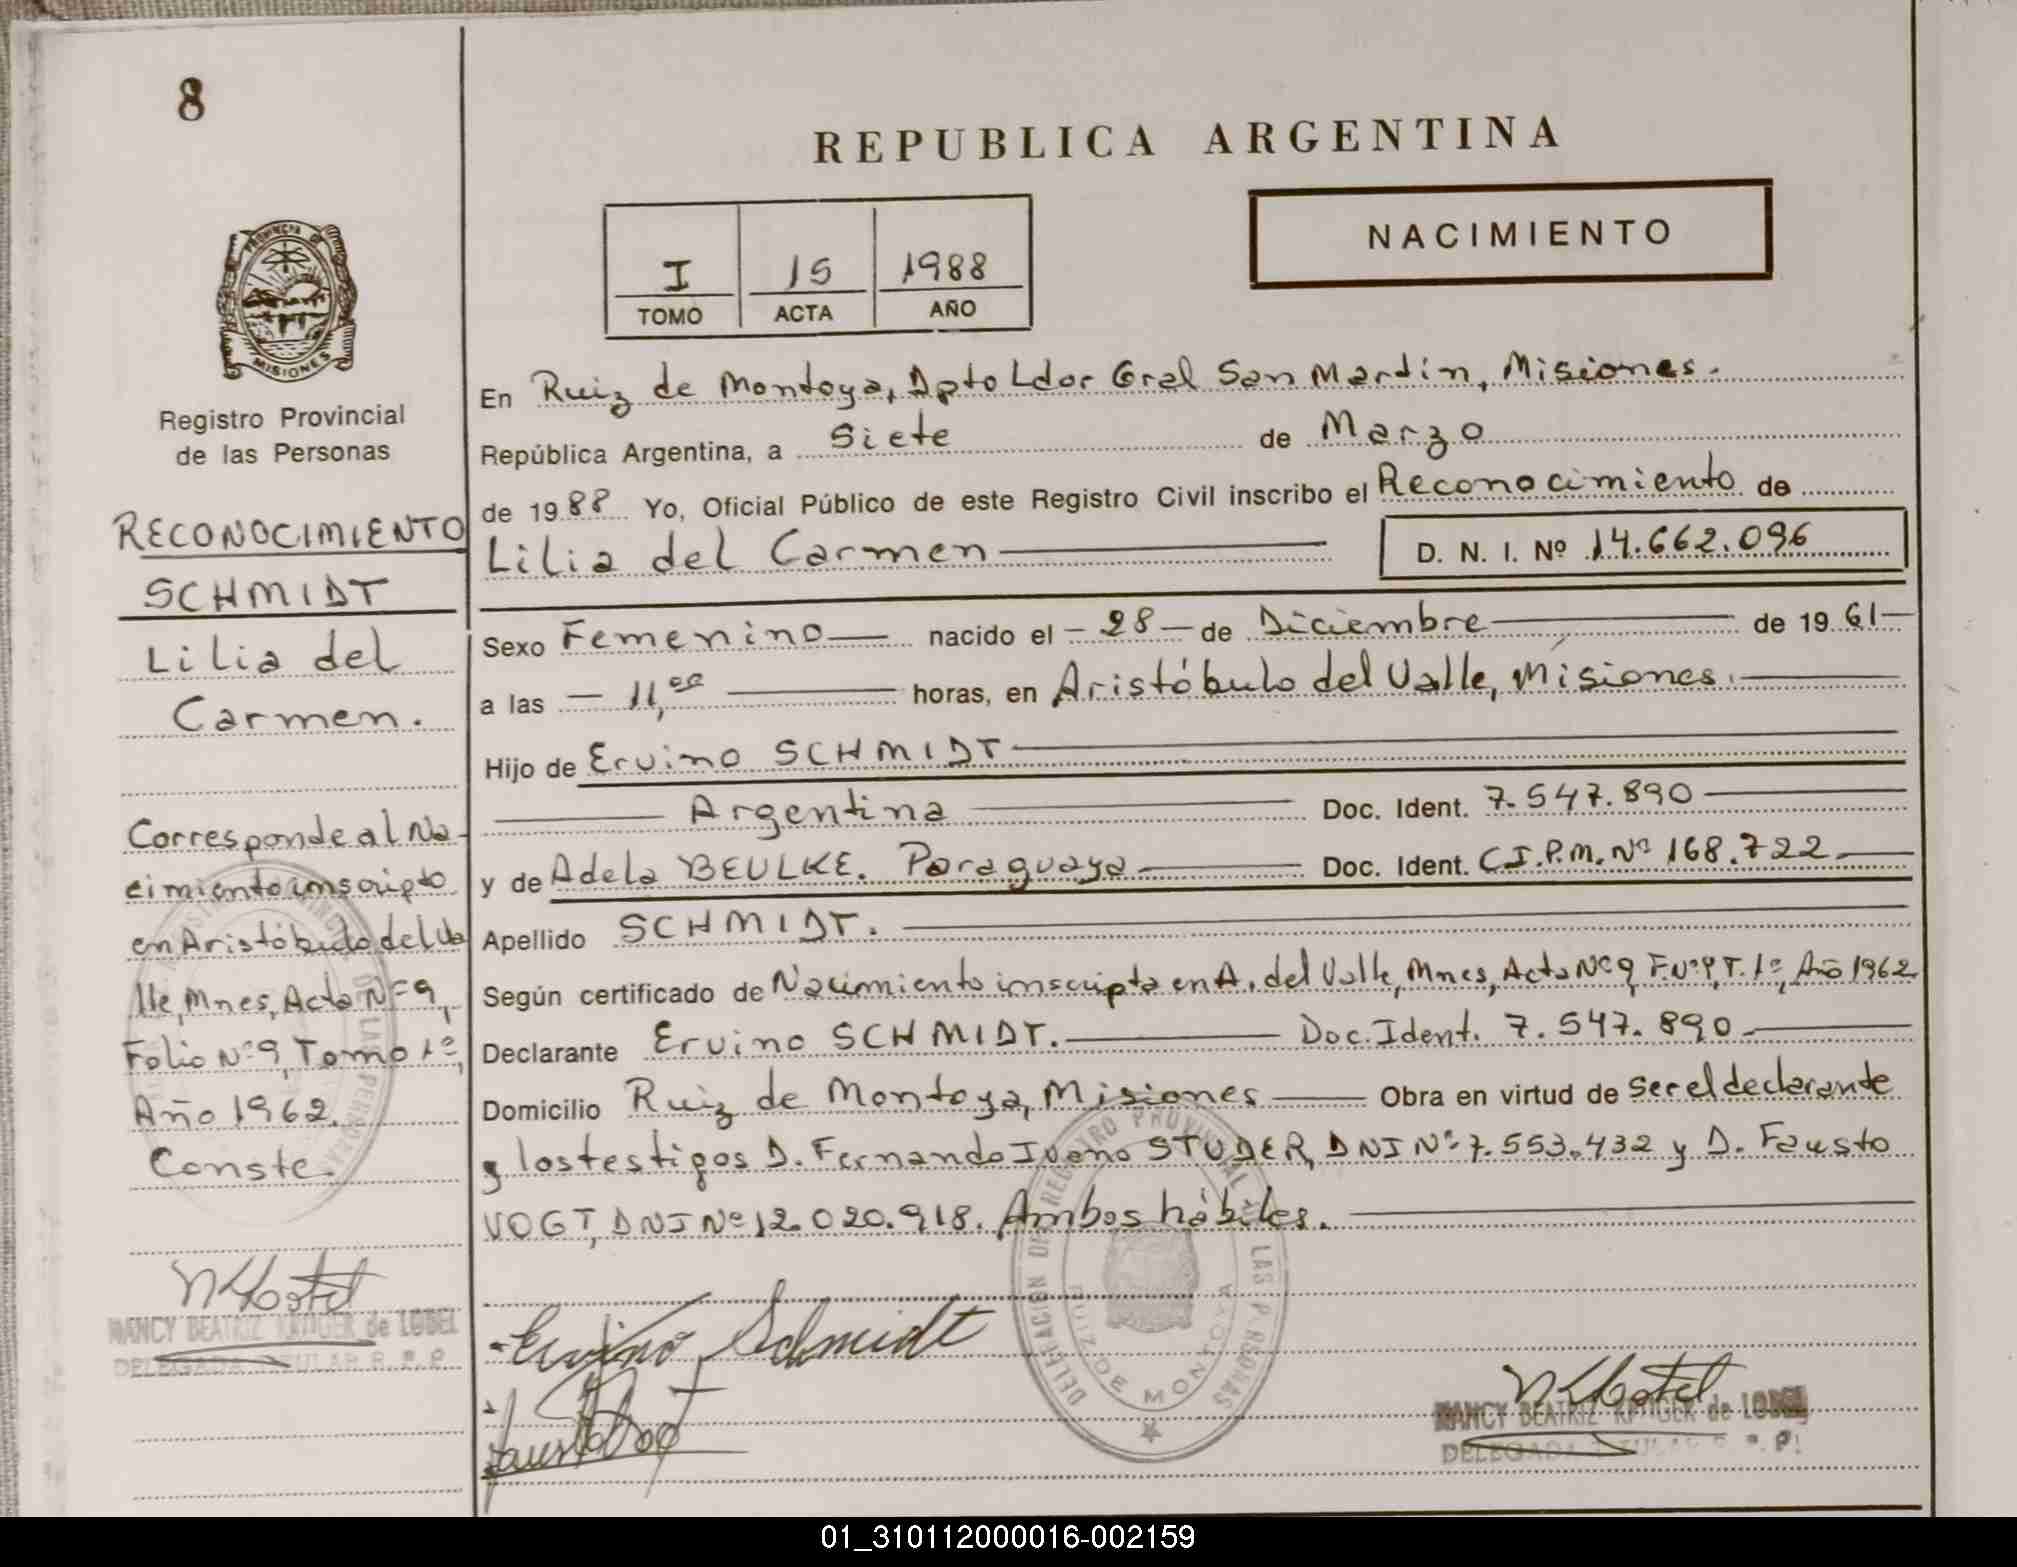 8
REPUBLICA ARGENTINA
NACIMIENTO
I 15 1988
TOMO ACTA AÑO
PROVINCIA DE
MISIONES
Registro Provincial
de las Personas
RECONOCIMIENTO
SCHMIDT
Lilia del
Carmen.
Corresponde al Na-
cimiento inscripto
en Aristóbulo del Va
lle, Mnes, Acta Nº 9,
Folio Nº 9, Tomo 1º,
Año 1962.
Conste.
NANCY BEATRIZ KRUGER de LOBEL
DELEGADA TITULAR R. P. P.
En Ruiz de Montoya, Dpto Ldor Gral San Martín, Misiones.
República Argentina, a Siete de Marzo
de 1988 Yo, Oficial Público de este Registro Civil inscribo el Reconocimiento de
Lilia del Carmen D. N. I. Nº 14.662.096
Sexo Femenino nacido el - 28 - de Diciembre de 1961
a las - 11,00 horas, en Aristóbulo del Valle, Misiones.
Hijo de Ervino SCHMIDT
Argentina Doc. Ident. 7.547.890
y de Adela BEULKE. Paraguaya Doc. Ident. C.I.P.M. Nº 168.722
Apellido SCHMIDT.
Según certificado de Nacimiento inscripto en A. del Valle, Mnes, Acta Nº 9, F. Nº 9, T. 1º, Año 1962
Declarante Ervino SCHMIDT. Doc. Ident. 7.547.890
Domicilio Ruiz de Montoya, Misiones Obra en virtud de ser el declarante
y los testigos D. Fernando STUDER, DNI Nº 7.553.432 y D. Fausto
VOGT, DNI Nº 12.020.918. Ambos hábiles.
DELEGACION DEL REGISTRO PROVINCIAL DE LAS PERSONAS
RUIZ DE MONTOYA
Ervino Schmidt
Fausto Vogt
NANCY BEATRIZ KRUGER de LOBEL
DELEGADA TITULAR R. P. P.
01_310112000016-002159